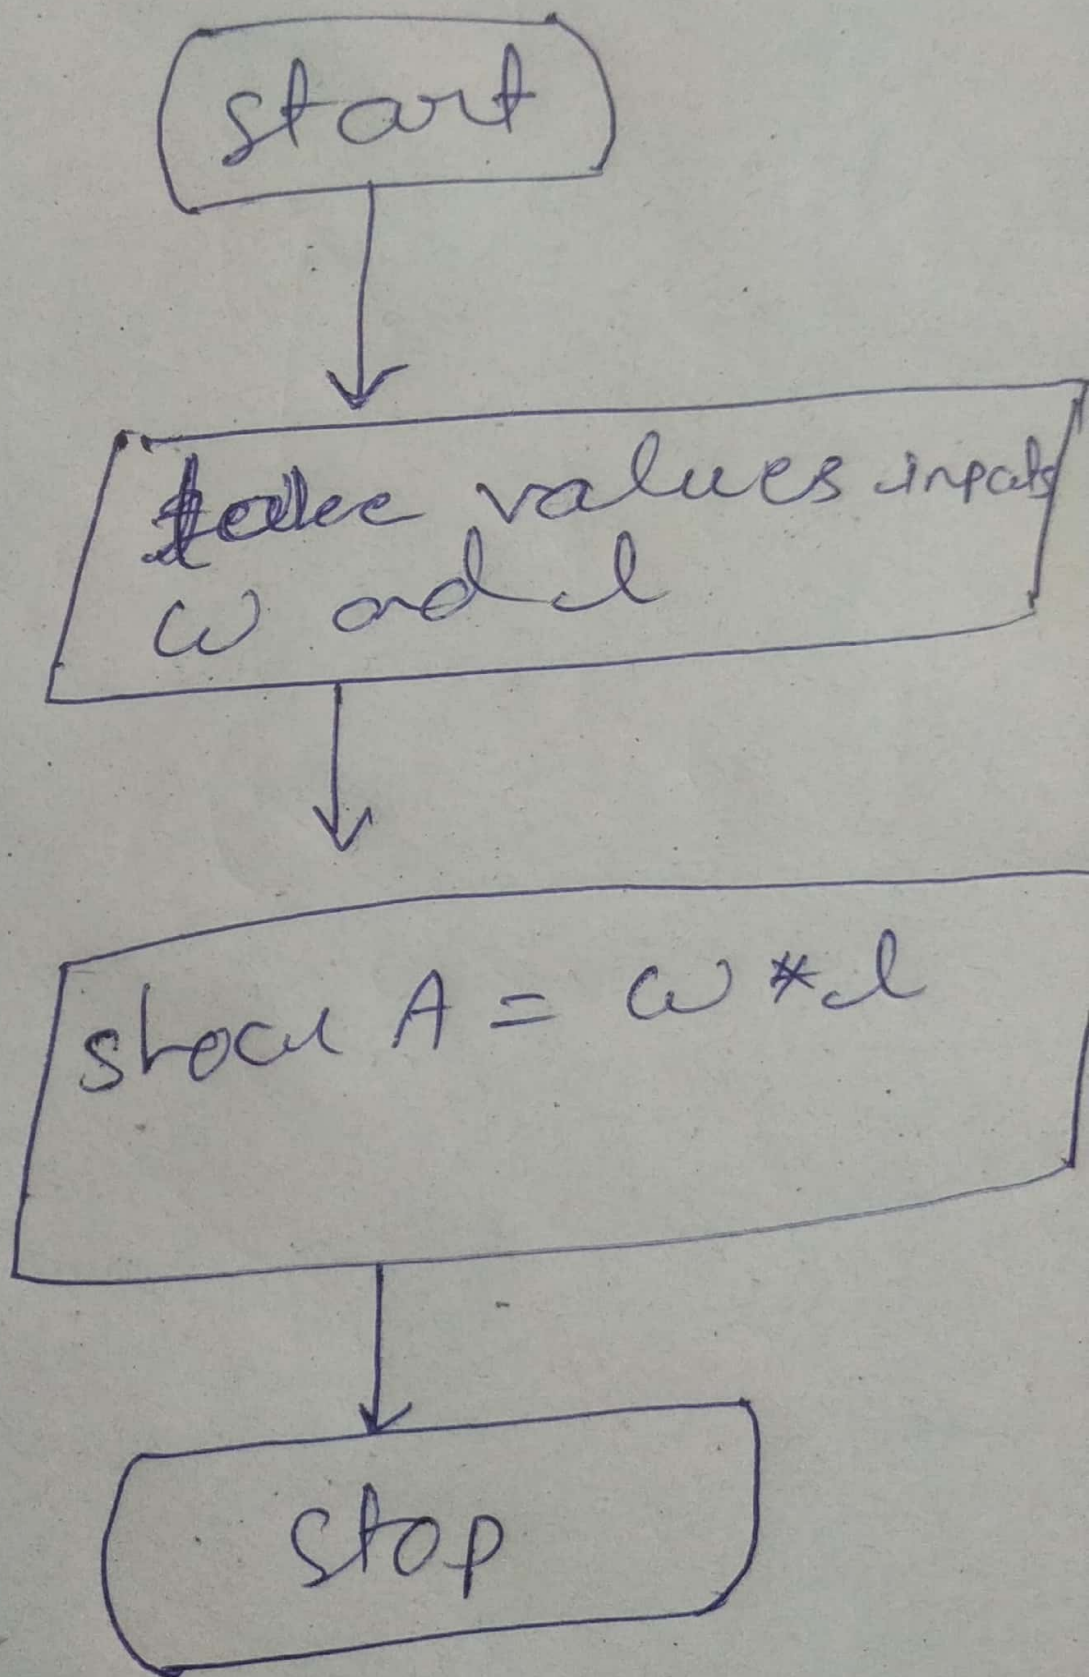 start
take values inputs
w and l
A = w * l
stop